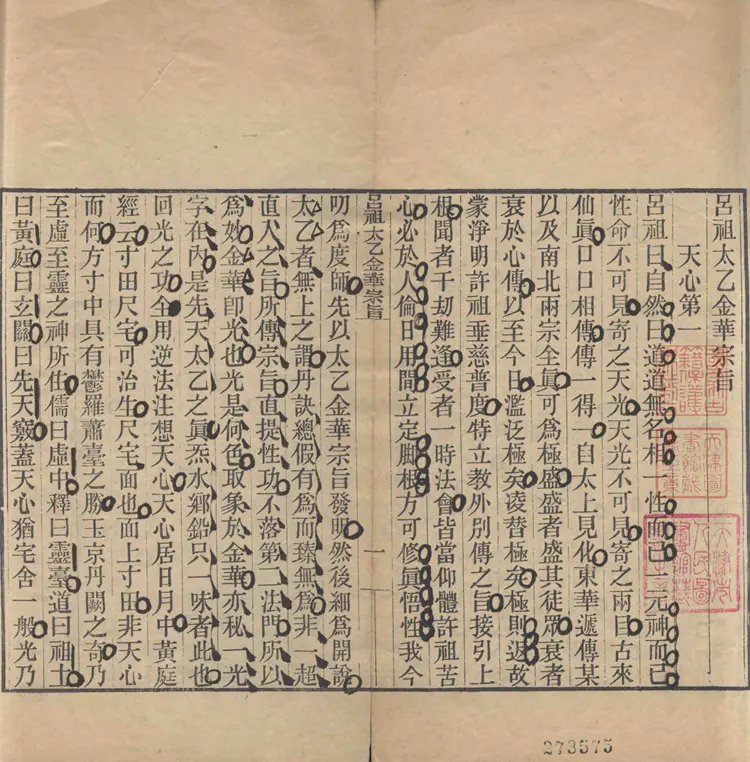 呂祖太乙金華宗旨
天心第一
呂祖曰自然曰道道無名相一性而已一元神而已
性命不可見寄之天光天光不可見寄之兩目古來
仙眞口口相傳傳一得一自太上見化東華遞傳某
以及南北兩宗全眞可爲極盛盛者盛其徒眾衰者
衰於心傳以至今日濫泛極矣凌替極矣極則返故
蒙淨明許祖垂慈普度特立教外別傳之旨接引上
根聞者千劫難逢受者一時法會皆當仰體許祖苦
心必於人倫日用間立定脚根方可修眞悟性我今
呂祖太乙金華宗旨
一
叨爲度師先以太乙金華宗旨發明然後細爲開說
太乙者無上之謂丹訣總假有爲而臻無爲非一超
直入之旨所傳宗旨直提性功不落第二法門所以
爲妙金華卽光也光是何色取象於金華亦秘一光
字在內是先天太乙之眞炁水鄉鉛只一味者此也
回光之功全用逆法注想天心天心居日月中黃庭
經云寸田尺宅可治生尺宅面也面上寸田非天心
而何方寸中具有鬱羅蕭臺之勝玉京丹闕之奇乃
至虛至靈之神所住儒曰虛中釋曰靈臺道曰祖土
曰黃庭曰玄關曰先天竅蓋天心猶宅舍一般光乃
273575